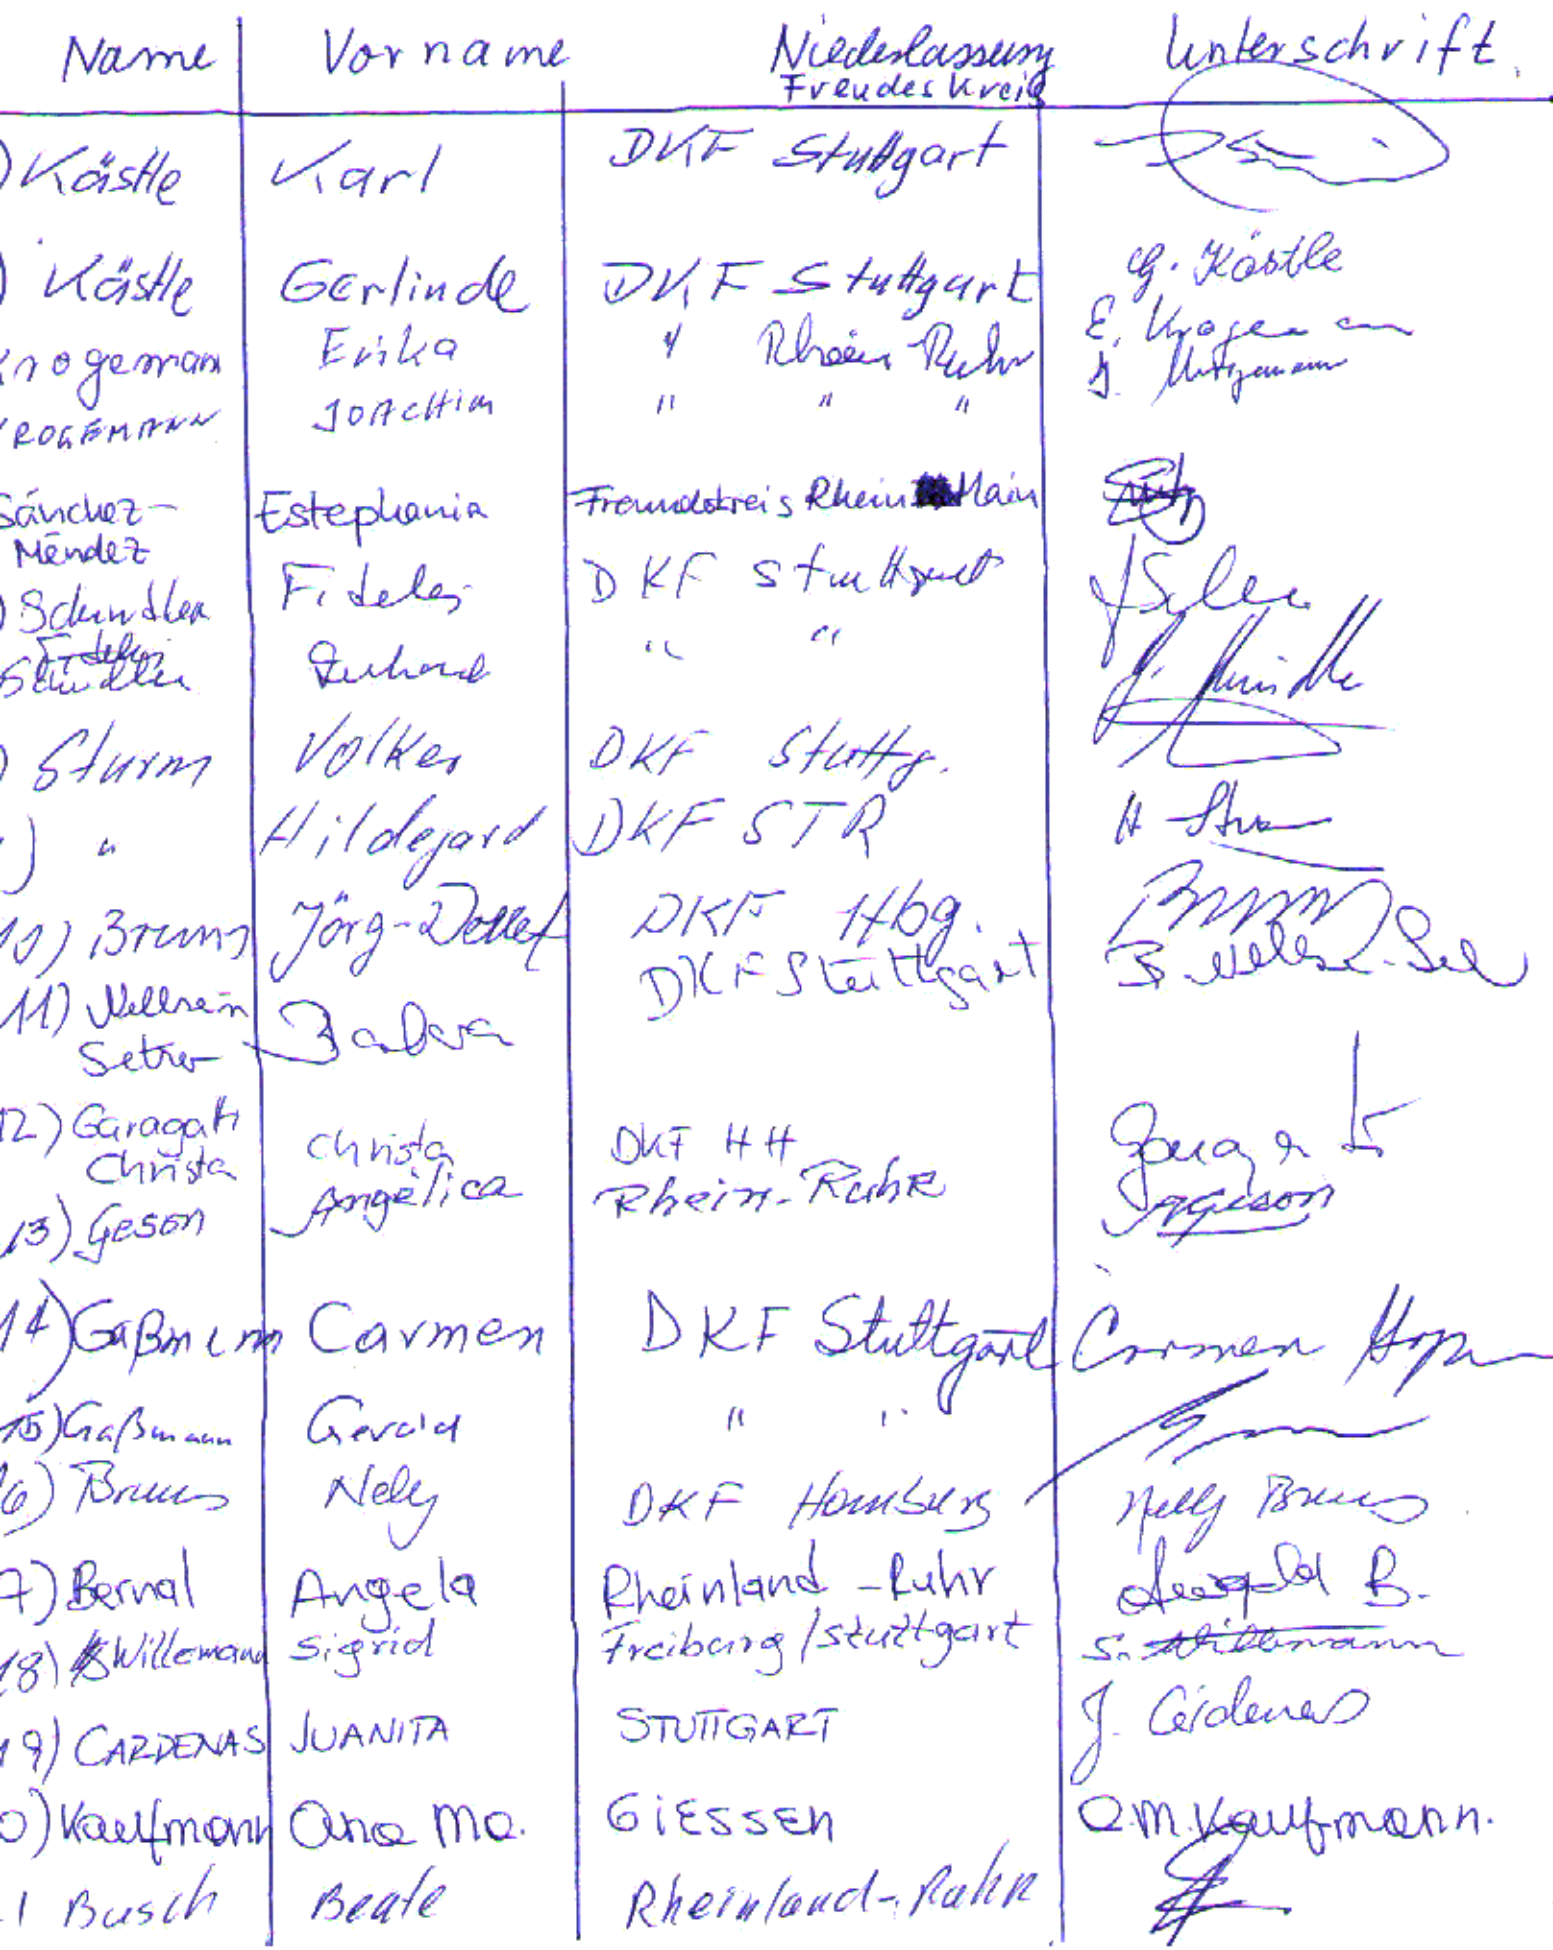 Name Vorname Niederlassung Unterschrift
Freudes Kreis
) Kästle Karl DKF Stuttgart
) Kästle Gerlinde DKF Stuttgart G. Kästle
Krogeman Erika " Rhein Ruhr E. Krogemann
KROGEMANN JOACHIM " " " J. Krogemann
Sánchez- Estephania Freundskreis Rhein Main
Méndez
) Schindler Fideles DKF Stuttgart
Fidelis
Schindler Gerhard " "
) Sturm Volker DKF Stuttg.
) " Hildegard DKF STR H Sturm
10) Bruns Jörg-Detlef DKF Hbg.
11) Nellsein DKF Stuttgart
Setzer Barbara
12) Garagati Christa DKF HH
Christa
13) Geson Angélica Rhein-Ruhr
14) Gaßmann Carmen DKF Stuttgart Carmen
15) Gaßmann Gerold " "
6) Bruns Nely DKF Hamburg Nelly Bruns
7) Bernal Angela Rheinland-Ruhr B.
18) Willemann Sigrid Freiburg/Stuttgart S. Willemann
19) CARDENAS JUANITA STUTTGART J. Cárdenas
0) Kaufmann Ana Ma. GiESSEN A.M. Kaufmann.
1 Busch Beate Rheinland-Ruhr